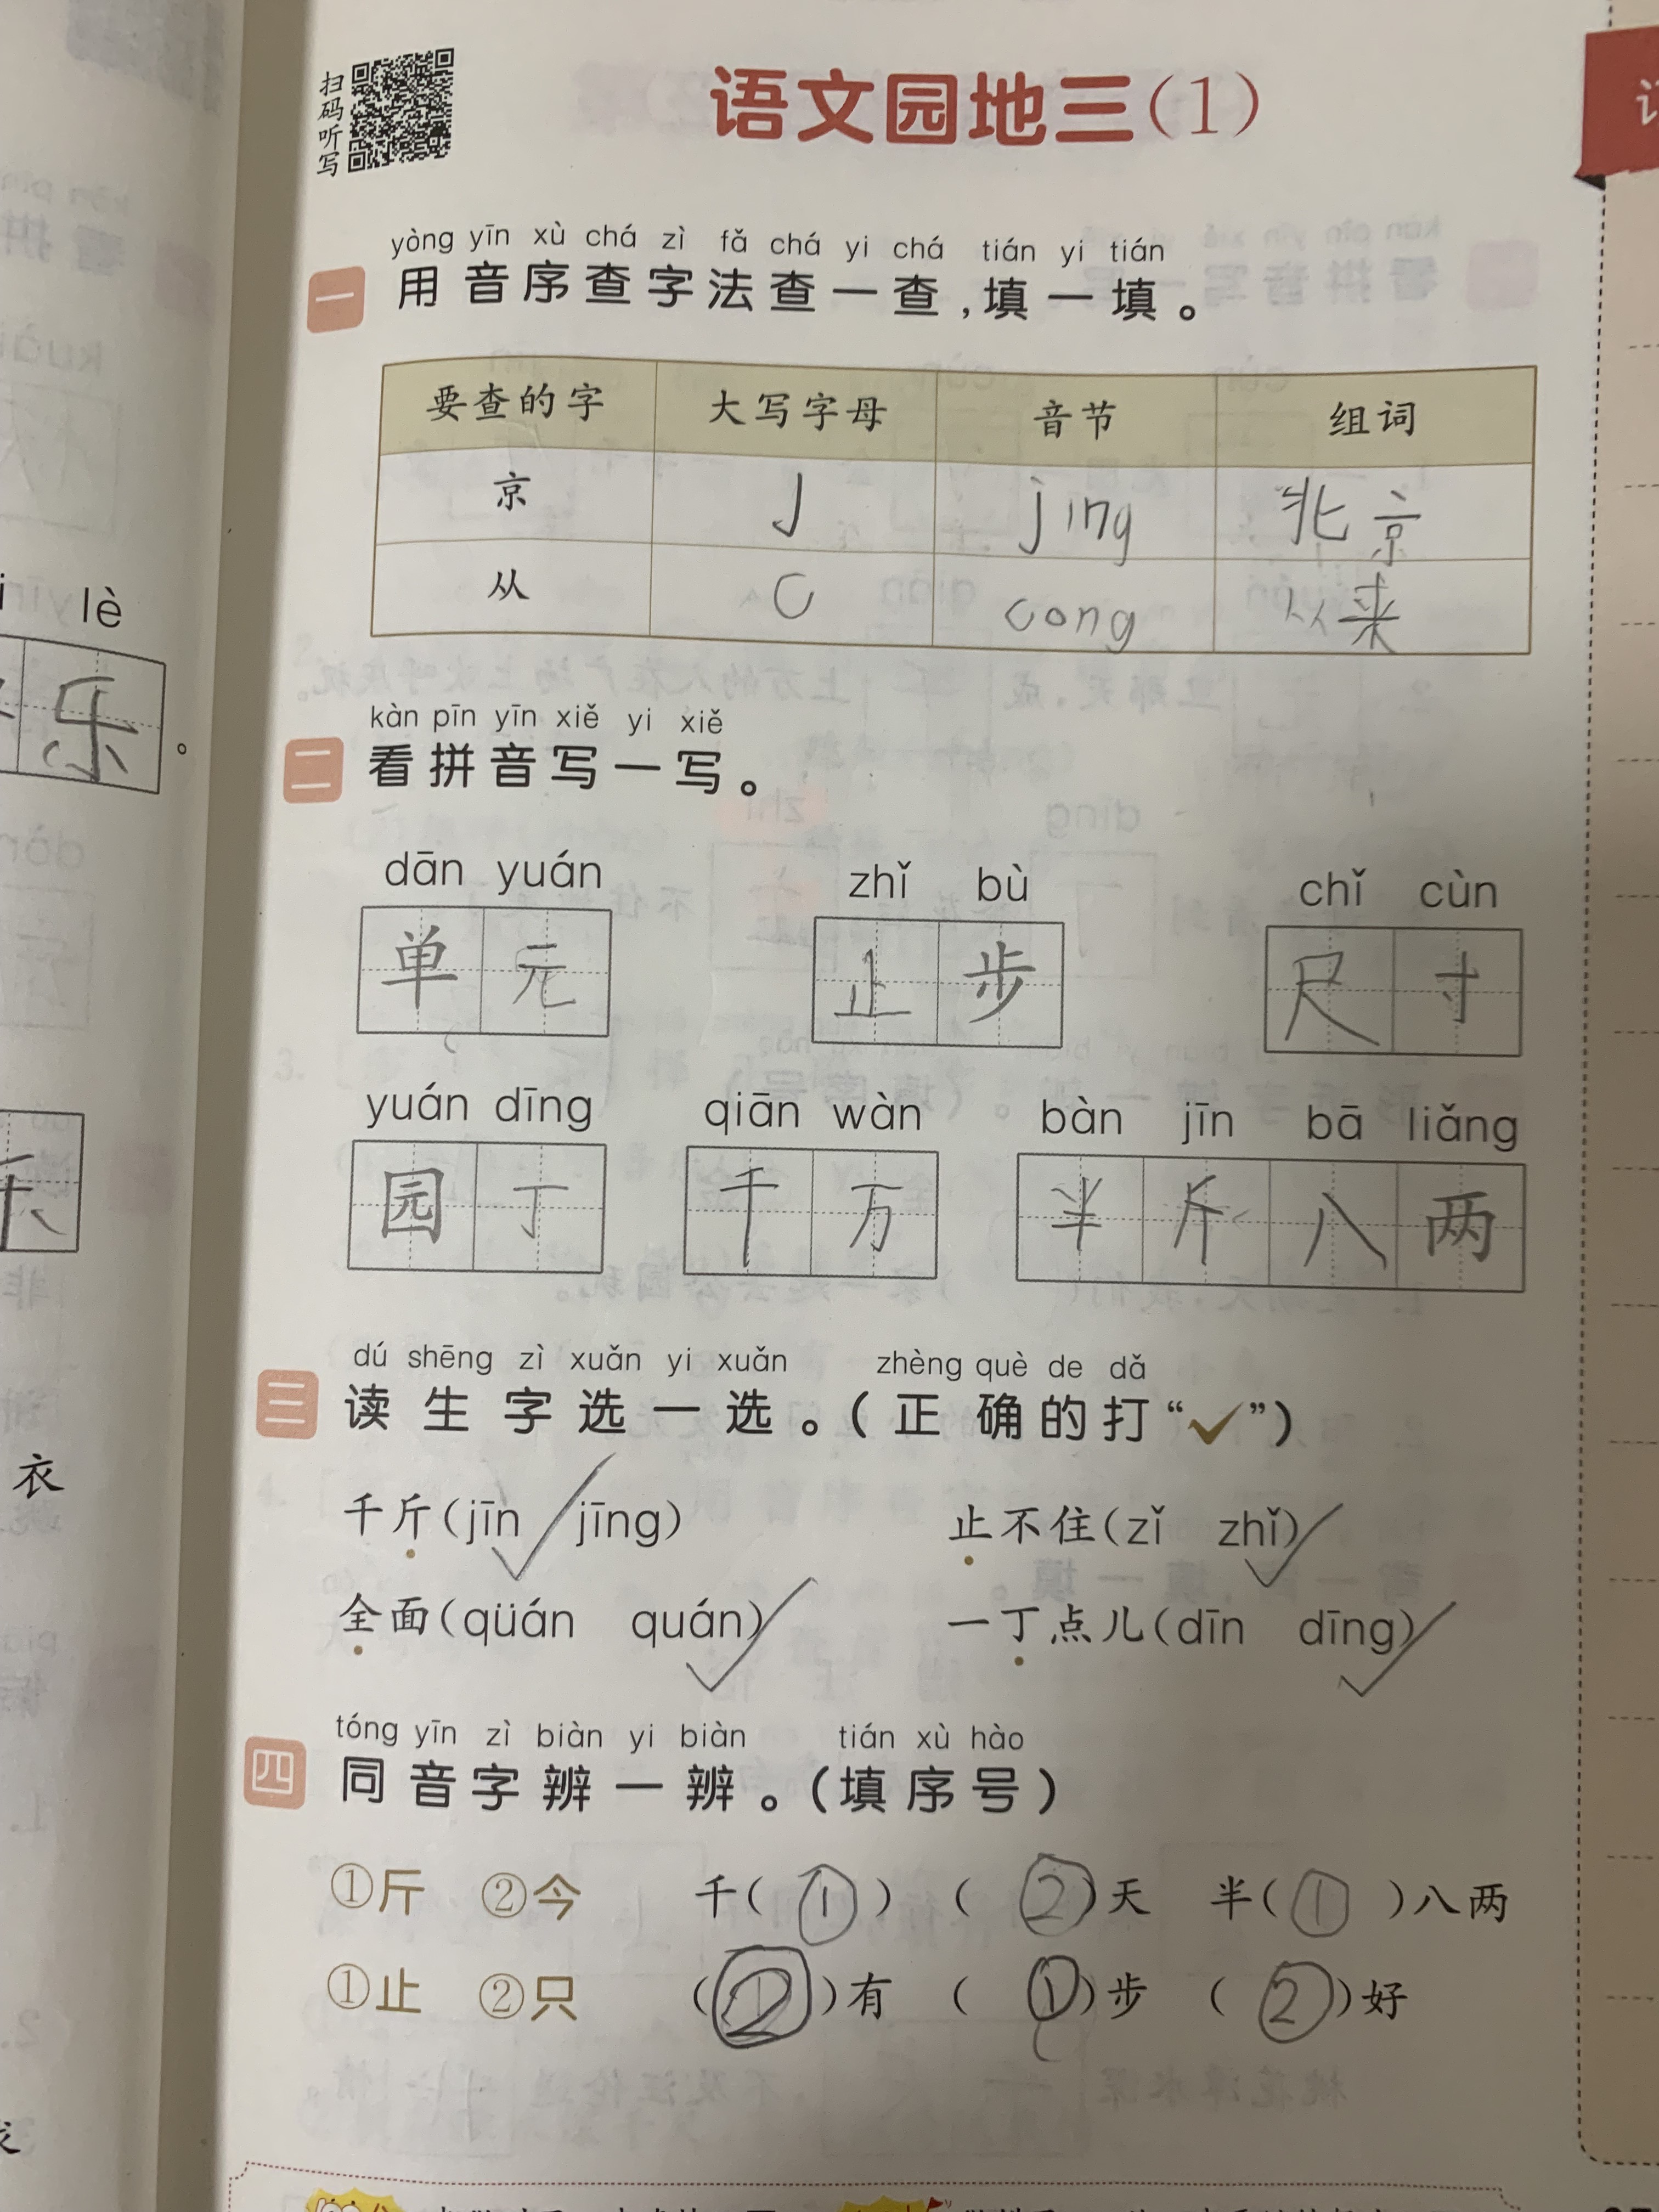 扫码听写
语文园地三(1)
yòng yīn xù chá zì fǎ chá yi chá tián yi tián
一 用音序查字法查一查,填一填。
要查的字 大写字母 音节 组词
京 J jing 北京
从 C cong 从来
kàn pīn yīn xiě yi xiě
二 看拼音写一写。
dān yuán zhǐ bù chǐ cùn
单元 止步 尺寸
yuán dīng qiān wàn bàn jīn bā liǎng
园丁 千万 半斤八两
dú shēng zì xuǎn yi xuǎn zhèng què de dǎ
三 读生字选一选。(正确的打“✓”)
千斤(jīn ✓ jīng) 止不住(zǐ zhǐ)✓
全面(qüán quán)✓ 一丁点儿(dīn dīng)✓
tóng yīn zì biàn yi biàn tián xù hào
四 同音字辨一辨。(填序号)
①斤 ②今 千(①) (②)天 半(①)八两
①止 ②只 (②)有 (①)步 (②)好
lè
乐。
衣